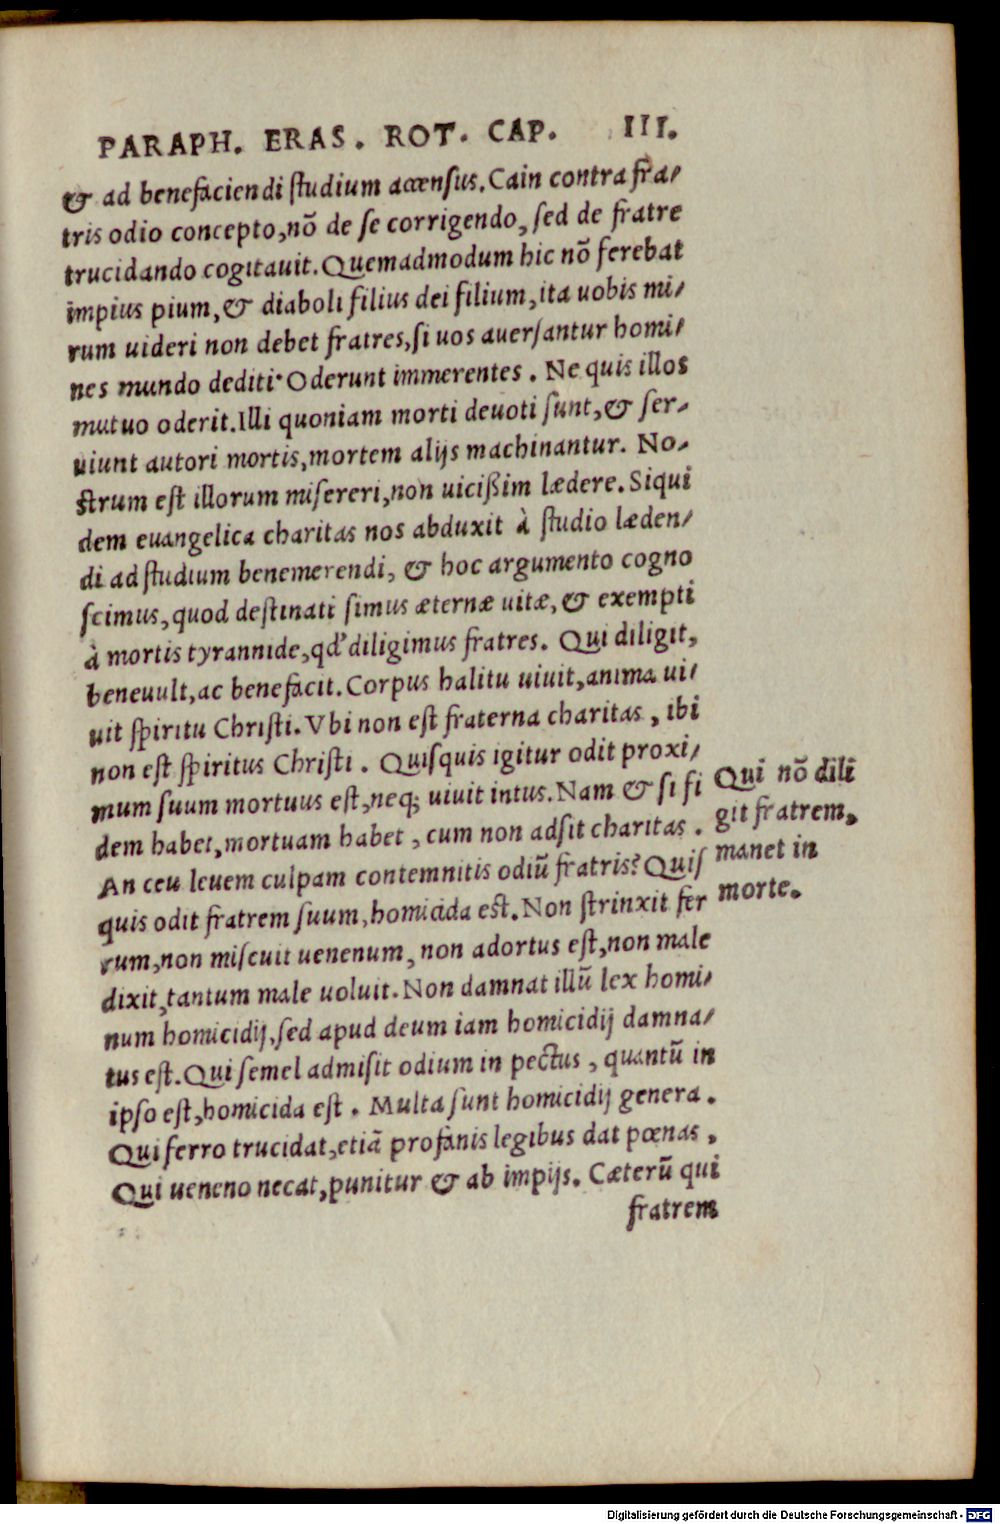 PARAPH. ERAS. ROT. CAP. III.
& ad benefaciendi studium accensus. Cain contra fra-
tris odio concepto, nõ de se corrigendo, sed de fratre
trucidando cogitauit. Quemadmodum hic nõ ferebat
impius pium, & diaboli filius dei filium, ita uobis mi-
rum uideri non debet fratres, si uos auersantur homi-
nes mundo dediti. Oderunt immerentes. Ne quis illos
mutuo oderit. Illi quoniam morti deuoti sunt, & ser-
uiunt autori mortis, mortem alijs machinantur. No-
strum est illorum misereri, non uicißim lædere. Siqui
dem euangelica charitas nos abduxit à studio læden-
di ad studium benemerendi, & hoc argumento cogno
scimus, quod destinati simus æternæ uitæ, & exempti
à mortis tyrannide, qd' diligimus fratres. Qui diligit,
beneuult, ac benefacit. Corpus halitu uiuit, anima ui-
uit spiritu Christi. Vbi non est fraterna charitas, ibi
non est spiritus Christi. Quisquis igitur odit proxi-
mum suum mortuus est, neq; uiuit intus. Nam & si fi
dem habet, mortuam habet, cum non adsit charitas.
An ceu leuem culpam contemnitis odiũ fratris? Quis
quis odit fratrem suum, homicida est. Non strinxit fer
rum, non miscuit uenenum, non adortus est, non male
dixit, tantum male uoluit. Non damnat illũ lex homi-
num homicidij, sed apud deum iam homicidij damna-
tus est. Qui semel admisit odium in pectus, quantũ in
ipso est, homicida est. Multa sunt homicidij genera.
Qui ferro trucidat, etiã profanis legibus dat pœnas,
Qui ueneno necat, punitur & ab impijs. Cæterũ qui
fratrem
Qui nõ dili
git fratrem,
manet in
morte.
Digitalisierung gefördert durch die Deutsche Forschungsgemeinschaft - DFG